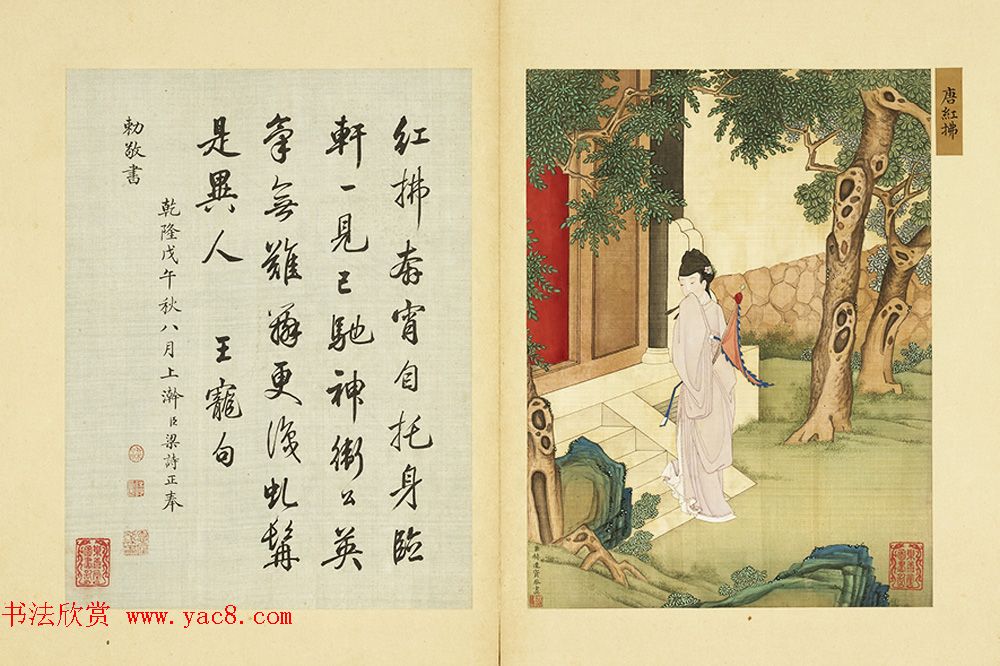 唐紅拂
紅拂奔宵自托身臨
軒一見已馳神衛公英
氣無難辨更識虬髯
是異人 王寵句
乾隆戊午秋八月上澣臣梁詩正奉
勅敬書
达資恭畫
书法欣赏 www.yac8.com